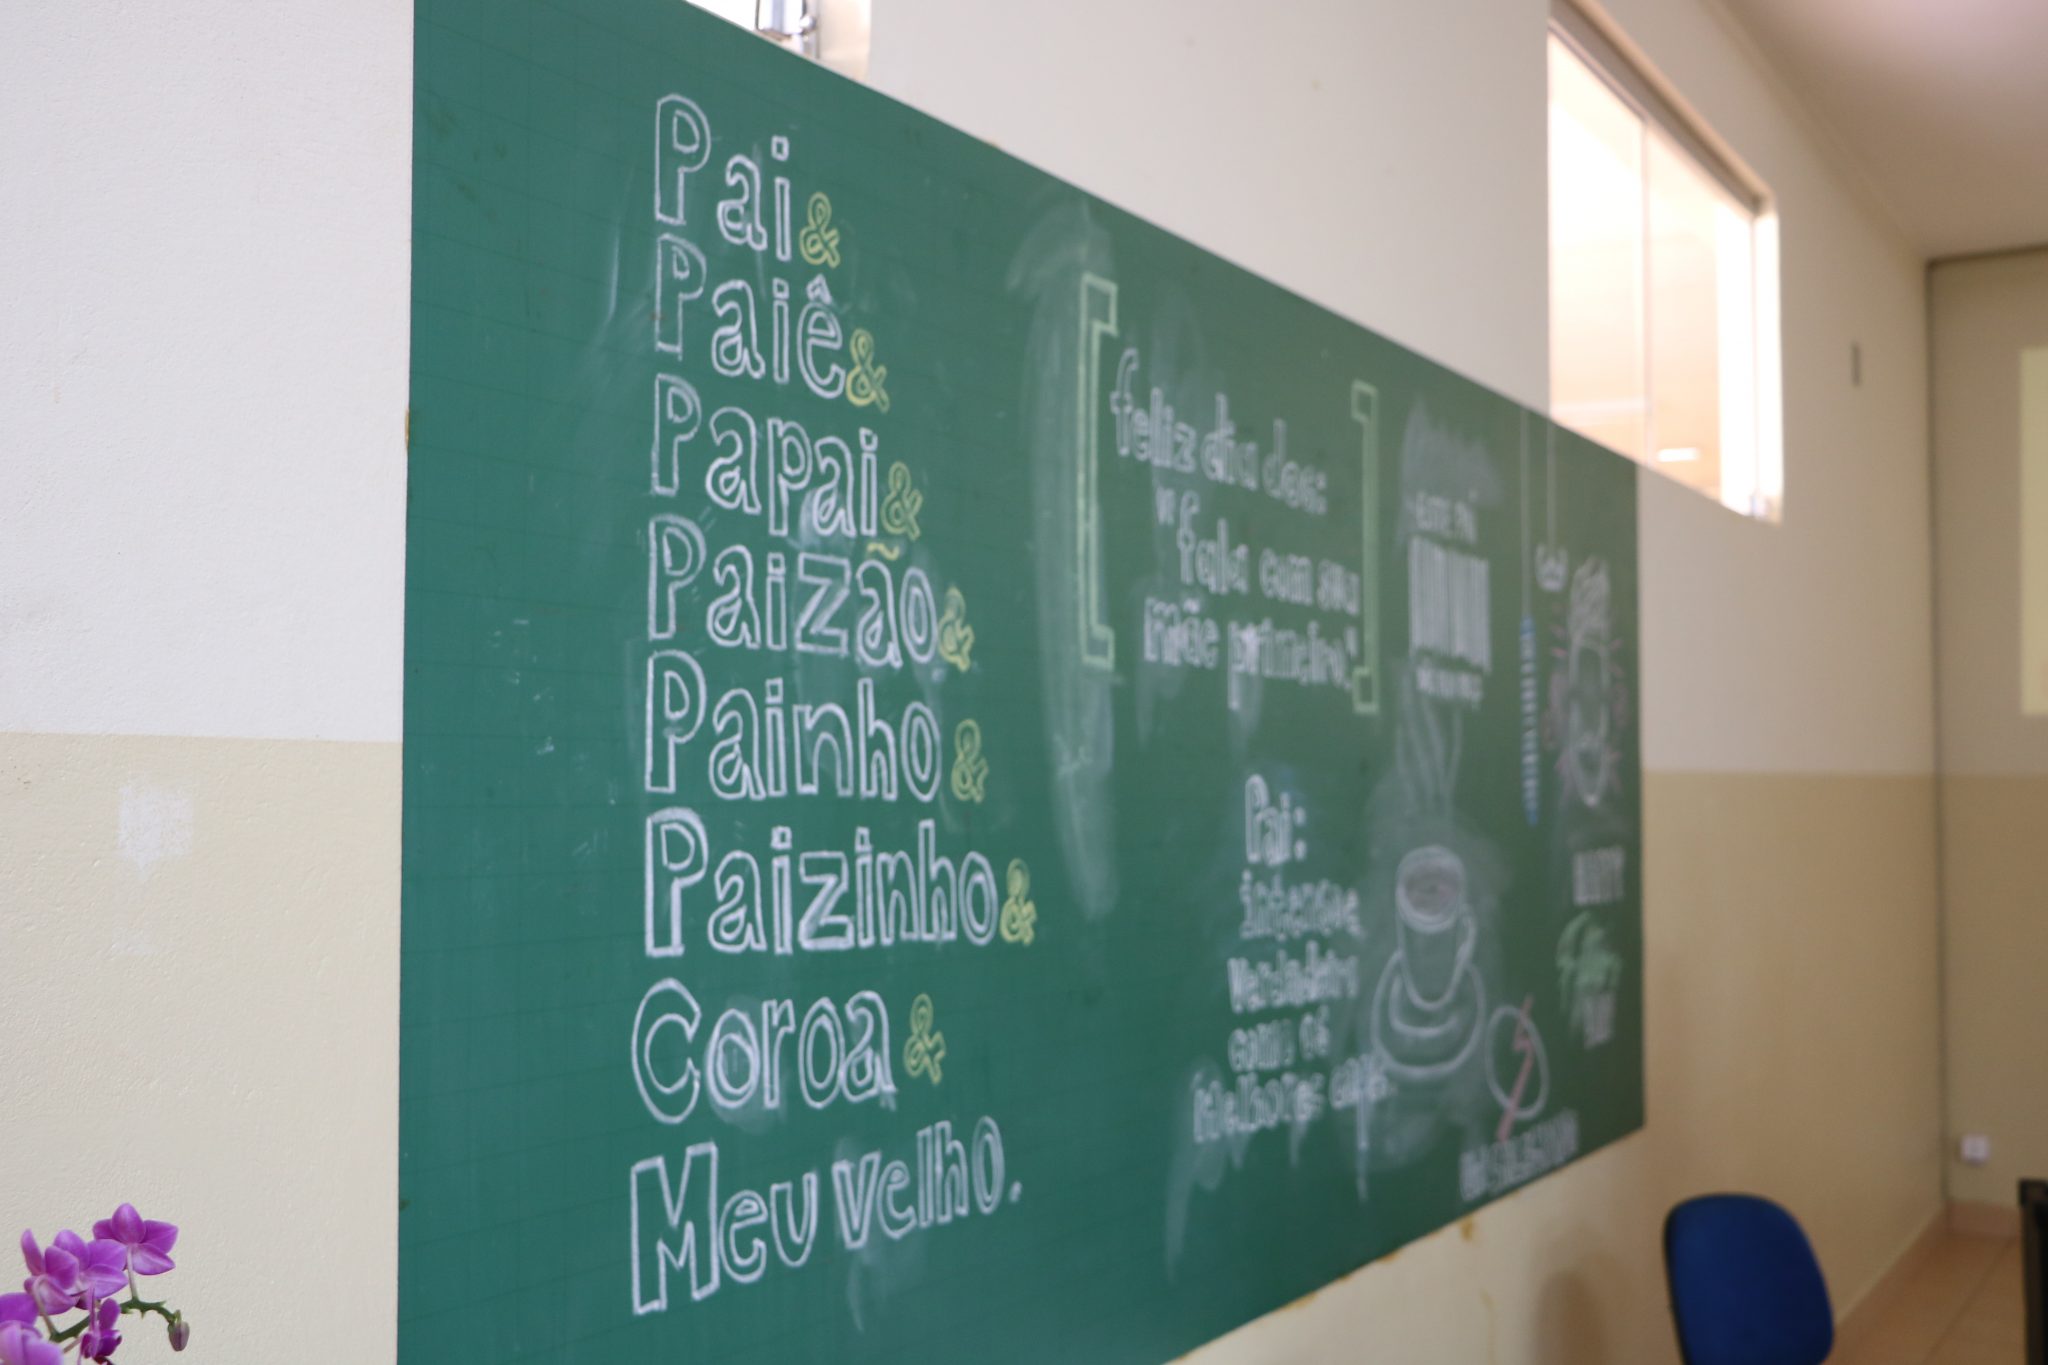 Pai &
Paiê &
Papai &
Paizão &
Painho &
Paizinho &
Coroa &
Meu velho.
[feliz dia dos:
"fala com sua
mãe primeiro."]
Pai:
intenso e
verdadeiro
como os
melhores cafés.
HAPPY